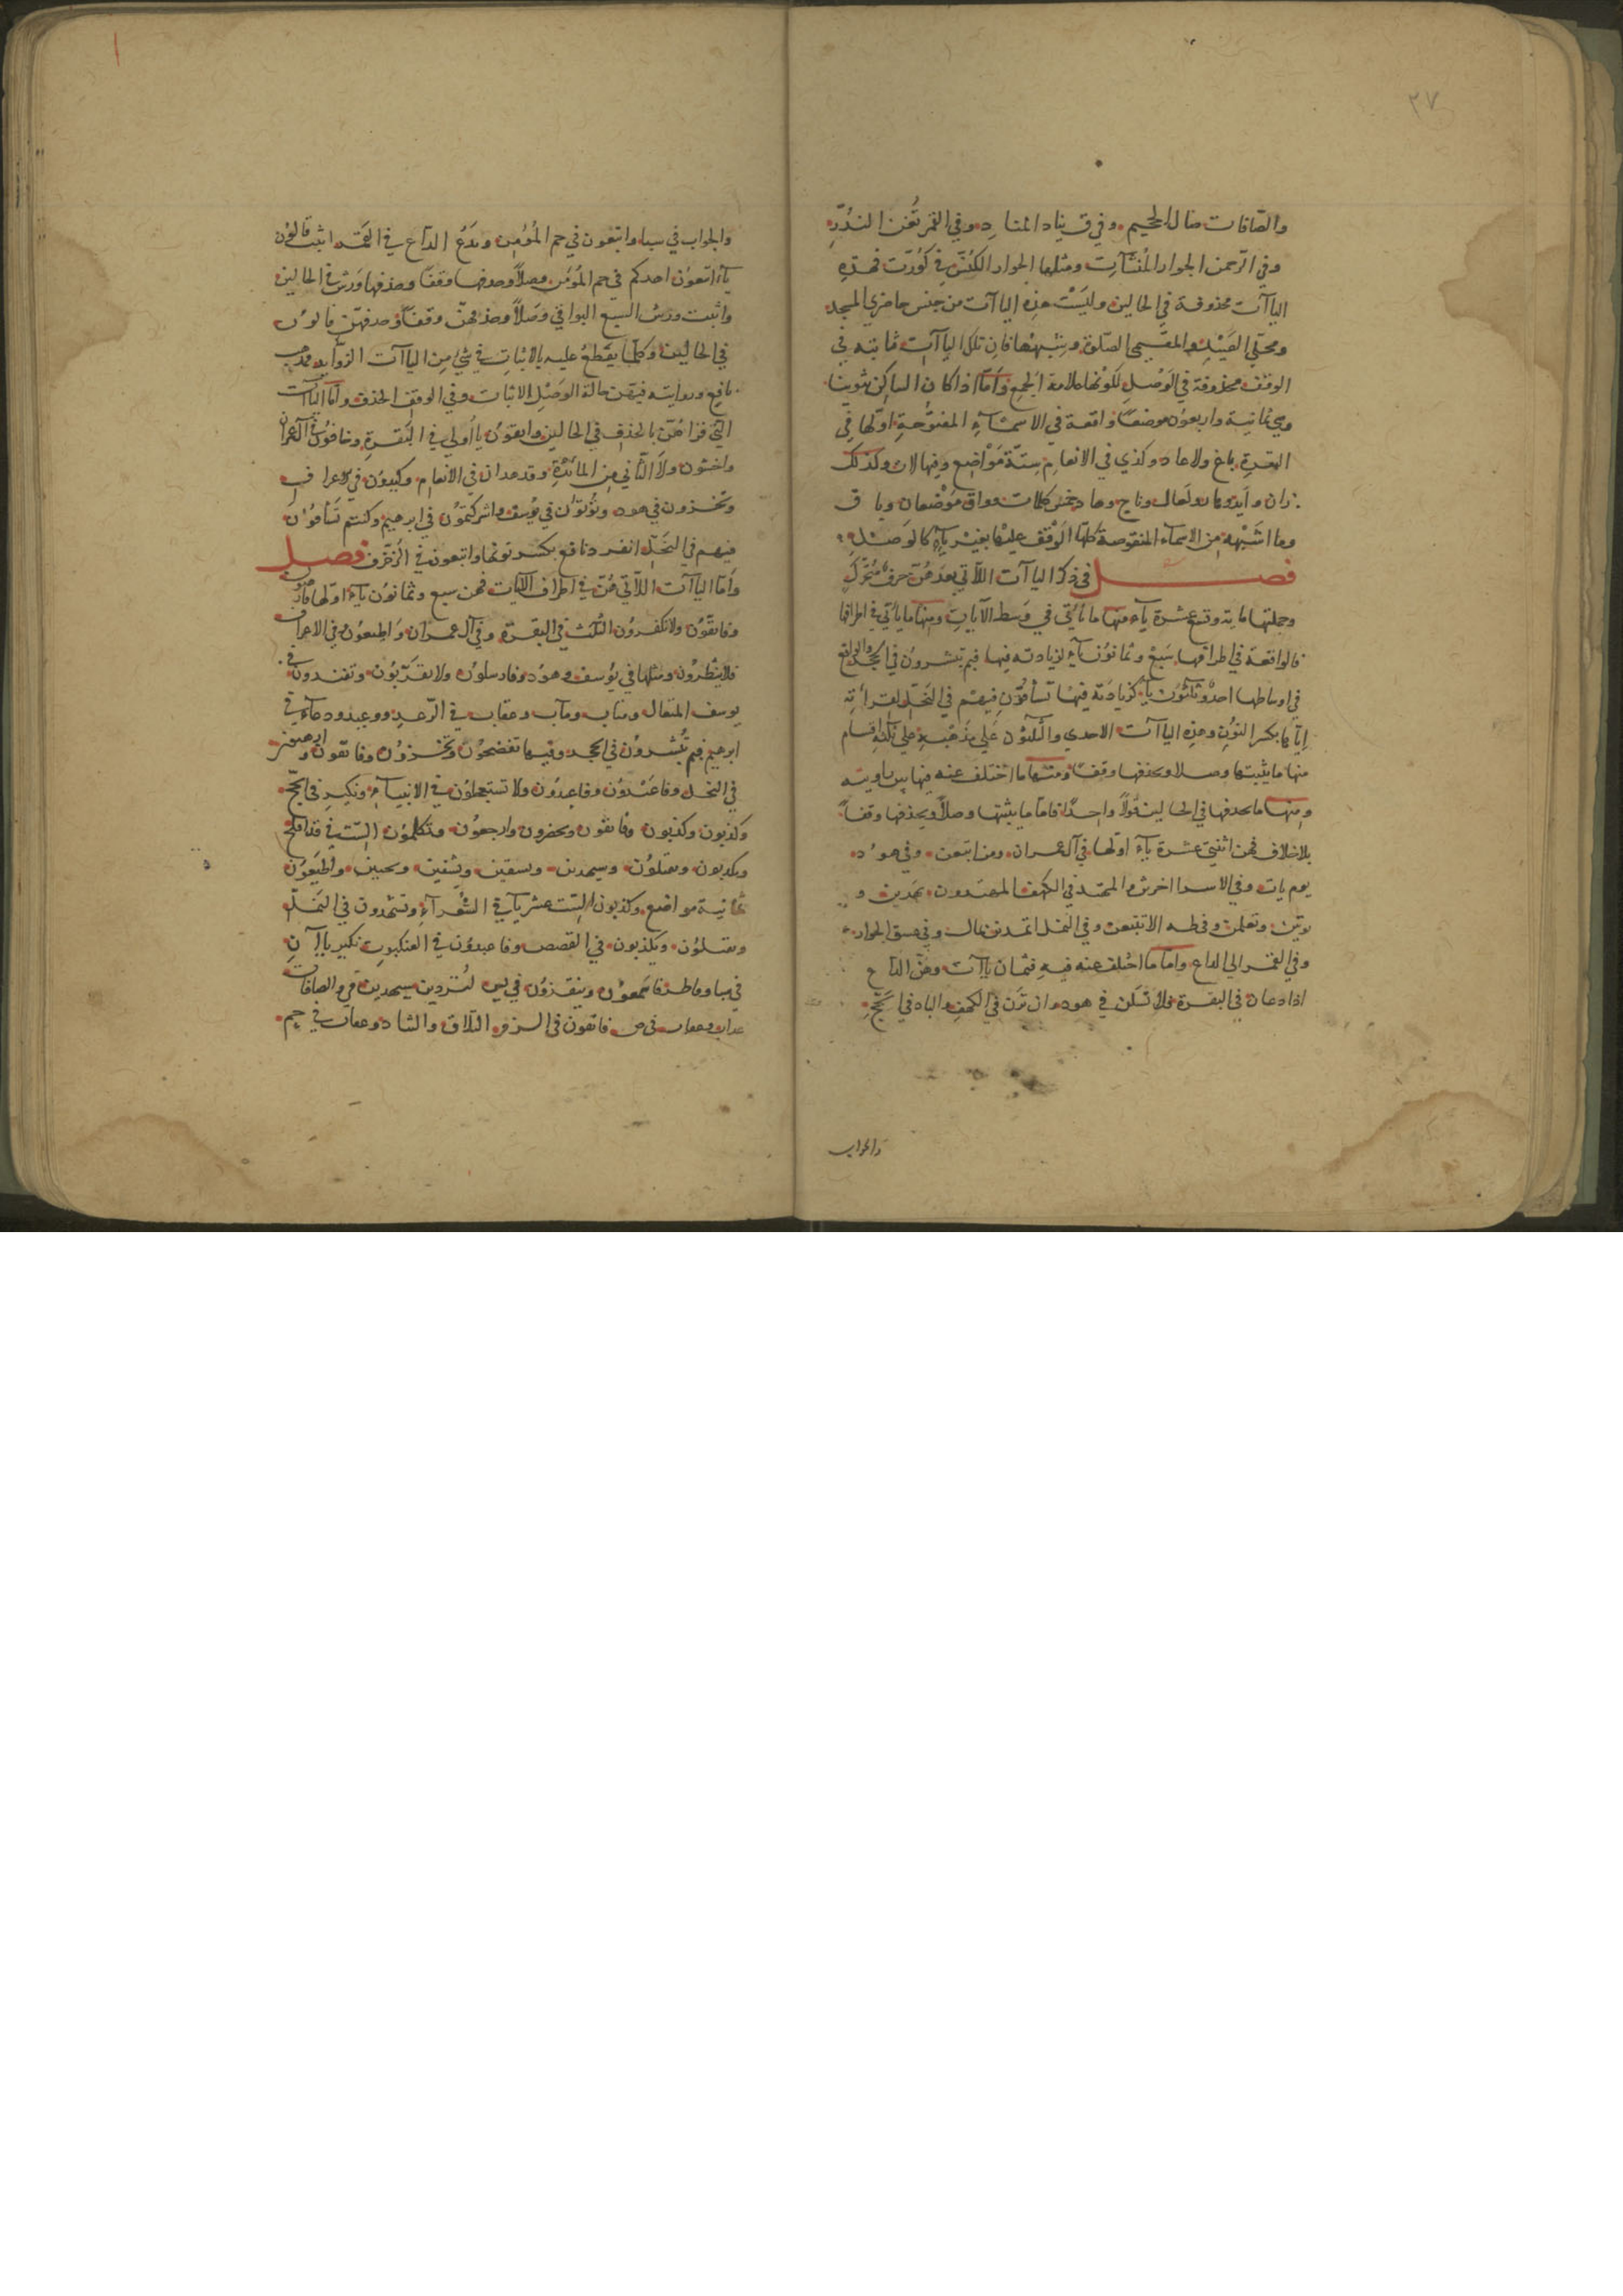 ٣٧
والصّافات صال الجحيم وفي ق يناد المناد وفي القمر تُغن النذُر
وفي الرحمن الجوار المُنشآت ومثلها الجوار الكُنّس في كُوّرت فهذه
الياآت محذوفة في الحالين وليسَتْ هذه الياآت من جنس حاضري المسجد
ومحلّي الصَيْد والمقيمي الصّلوة وشبهها فان تلك الياآت ثابته في
الوقف محذوفة في الوَصْلِ لكونها علامة الجمع وَامّا اذا كان الساكن تنوينا
وهي ثمانية واربعون موضعًا واقعة في الاسمآءِ المفتوحةِ اوّلها في
البقرةِ باغ ولا عاد وكذي في الانعام ستّة مَوَاضِع وفيها لات وكذلك
زان وايد وهاد ولعال وناج وهاد خمس كلمات وواق مَوْضعان وباق
وما اشبَهه من الاسمآء المنقوصة كلّها الوَقف عليها بغيْر يآءٍ كالوَصْلِ
فصل في ذكر الياآت اللاّتي بعدَهُنّ حرفٌ مُتحَرّك
وجملتها مايه وتسع عشرة يآء منها ما يأتي في وسط الآياتِ ومنها ما يأتي في اطرافها
فالواقعة في اطرافها سَبعٌ وثمانوُن يآءً لزيادته فيها فبم تبشرون في الحجر والواقع
في اوساطها احدٌ وثلثون يآء كزيادَته فيها تُشاقّونِ فيهم في النحل لقرأته
ايّاها بكسر النوُنِ وهذِه الياآت الاحدي والثلثون عَلي مذهَبِهِ علي ثلثة اقسام
منها ما يثبتها وصلا ويحذفها وقفًا ومنها ما اختلف عنه فيها بين راويته
ومنها ما يحذفها في الحالين قولاً واحدًا فامّا ما يثبتها وصلاً ويحذفها وقفاً
بلا خلاف فهن اثنتي عشرة يآء اولها في آل عمران ومن اتبعن وفي هود
يوم يات وفي الاسرا اخرتن والمهتد في الكهف المهتدون يهدين و
يوتين وتعلمن وفي طه الا تتبعن وفي النمل اتمدونن بمال وفي عسق الجوار
وفي القمر الي الداع وامّا ما اختلف عنه فيه فثمان ياآت وهُنّ الداع
اذا دعان في البقرة ولا تسَلن في هود وان ترَن في الكهف والباد في الحجِّ
والجواب
والجواب في سبا واتبعون في حم المُؤمن ويَدعُ الداع في القمر اثبت قالوُن
يآء اتبعوُن اهدكم في حم المُؤمن وصلاً وحذفها وقفًا وحذفها ورش في الحالين
واثبت ورش السبع البواقي وَصَلاً وحذفهنّ وقفًا وحذفهنّ قالون
في الحالين وكلما يقطع عليه بالاثباتِ في شئ من الياآت الزوآيد مذهب
نافع وروايته فيهن حالة الوَصْلِ الاثبات وفي الوقف الحذف وامّا الياآت
التي قرأهُنّ بالحذف في الحالين واتقوُن يا أولي في البَقرةِ وخافوُن في آل عمران
واخشون ولا الثّاني من المآئدةِ وقد هدان في الانعام وكيدوُن في الاعراف
وتخزون في هود وتؤتوُن في يوُسف واشركتموُن في ابرهيم وكنتم تشَآقوُن
فيهم في النحلّ انفرد نافع بكسر نونها واتبعون في الزخرف فصل
وامّا الياآت اللاّتي هُنّ في اطراف الآيات فهن سبع وثمانوُن يآء اوّلها فارهبون
وفاتقوُن ولا تكفروُن الثلث في البقرة وفي آل عمران واطيعوُن وفي الاعراف
فلا ينظروُن ومثلها في يوُسف وهوُد وفارسلون ولا تقرَبوُن وتفندون في
يوسف المتعال ومتاب ومآب وعقاب في الرّعد ووعيد ودعاء في
ابرهيم فبم تُبشروُن في الحجر وفيها تفضحوُن وتخزوُن وفاتقون وفارهبون
في النحل وفاعبدوُن وفاعبدوُن ولا تستعجلوُن في الانبيآءِ ونكير في الحجّ
وكذبون وكذبون وفاتقون ويحضرون وارجعون وتكلموُن السّت في قد افلح
ويكذبون ويقتلون وسيهدين ويسقين ويشفين ويحيين واطيعوُن
ثمانية مواضع وكذبون السّت عشر يآء في الشُعرآءِ وتشهدون في النمل
ويقتلون ويكذبون في القصص وفاعبدون في العنكبوت نكير ياآن
في سبا وفاطر فاسمعون وينقذون في يس لتُردين سيهدين في والصافات
عذاب وعقاب في ص فاتقون في الزمر التلاق والتناد وعقاب في حم